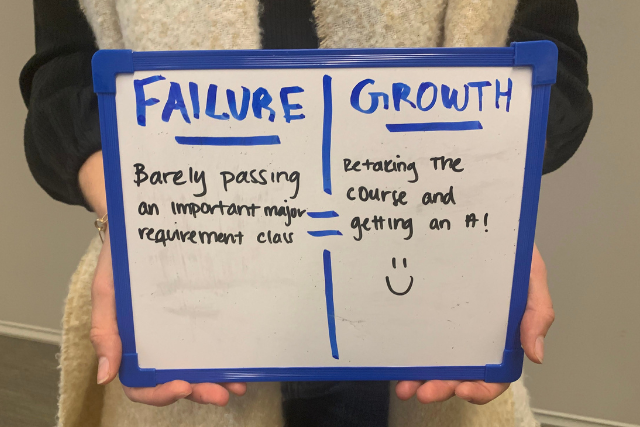 FAILURE
Barely passing
an important major
requirement class
=
GROWTH
Retaking The
course and
getting an A!